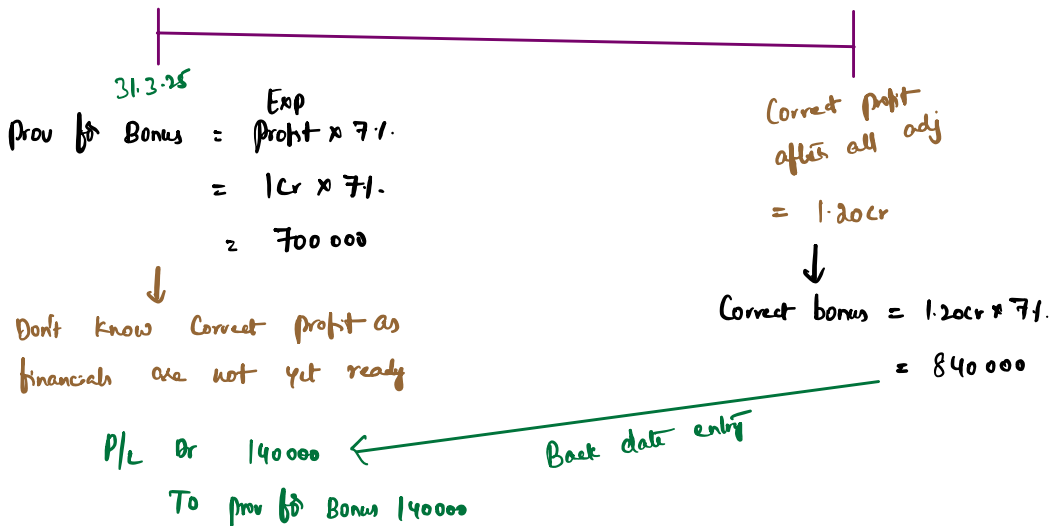 31.3.25
Prov for Bonus = Exp Profit x 7%.
= 1cr x 7%.
= 700 000
Don't know correct profit as
financials are not yet ready
Correct profit
after all adj
= 1.20cr
Correct bonus = 1.20cr x 7%.
= 840 000
Back date entry
P/L Dr 140000
To prov for Bonus 140000